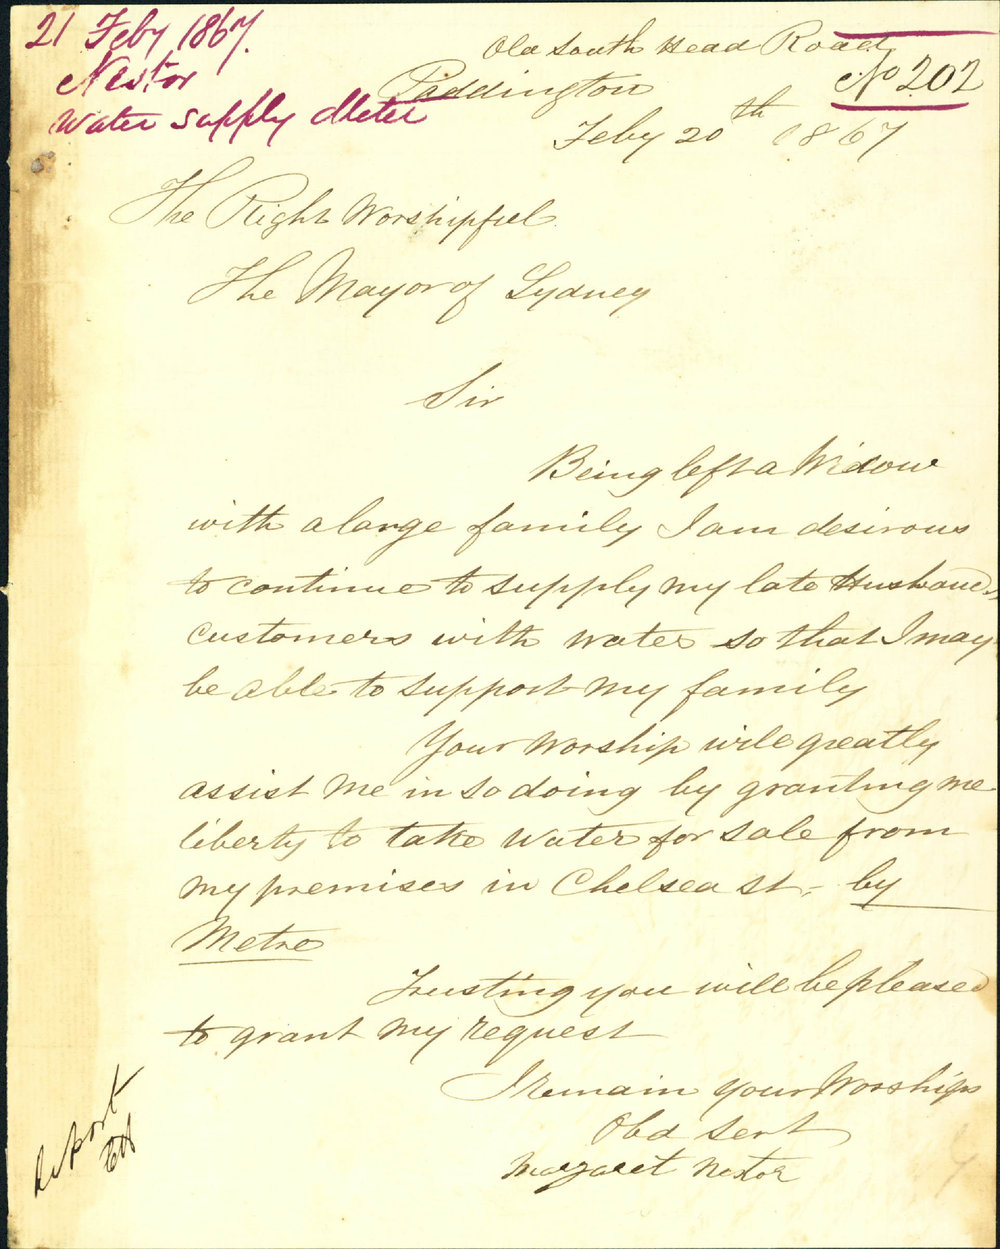 21 Feby 1867.
Nestor
Water supply Meter
No 202
Old South Head Road
Paddington
Feby 20th 1867
The Right Worshipful
The Mayor of Sydney
Sir
Being left a Widow
with a large family I am desirous
to continue to supply my late Husbands
customers with water so that I may
be able to support my family
Your Worship will greatly
assist me in so doing by granting me
liberty to take Water for sale from
my premises in Chelsea St, by
Metre
Trusting you will be pleased
to grant my request
I Remain your Worships
Obd Sert
Margaret Nestor
Report